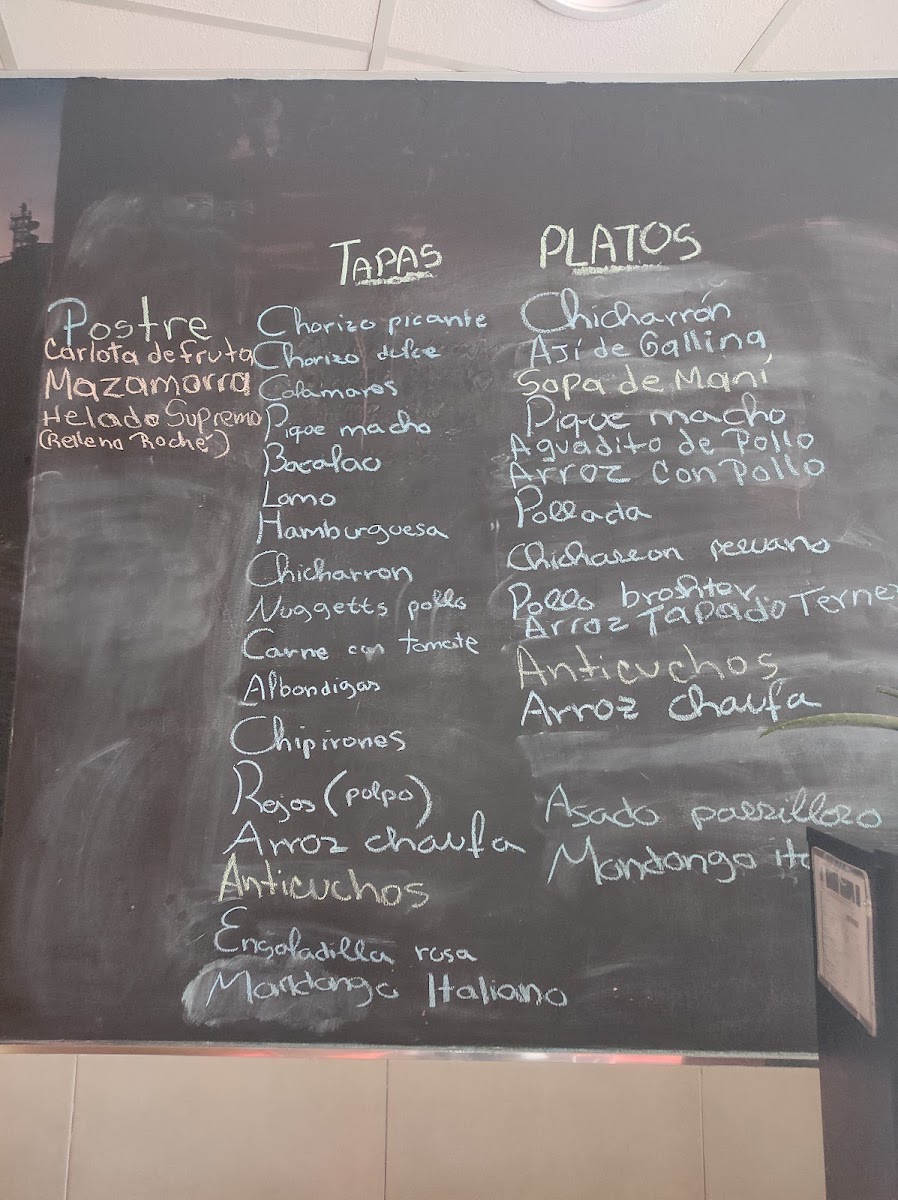 Postre
Carlota de fruta
Mazamorra
Helado Supremo
(Relleno Roché)
TAPAS
Chorizo picante
Chorizo dulce
Calamares
Pique macho
Bacalao
Lomo
Hamburguesa
Chicharron
Nuggetts pollo
Carne con tomate
Albondigas
Chipirones
Rejos (polpo)
Arroz chaufa
Anticuchos
Ensaladilla rosa
Mondongo Italiano
PLATOS
Chicharrón
Ají de Gallina
Sopa de Maní
Pique macho
Aguadito de Pollo
Arroz con Pollo
Pollada
Chicharron peruano
Pollo
Arroz TAPADO Terne
Anticuchos
Arroz chaufa
Asado parrillero
Mondongo ita